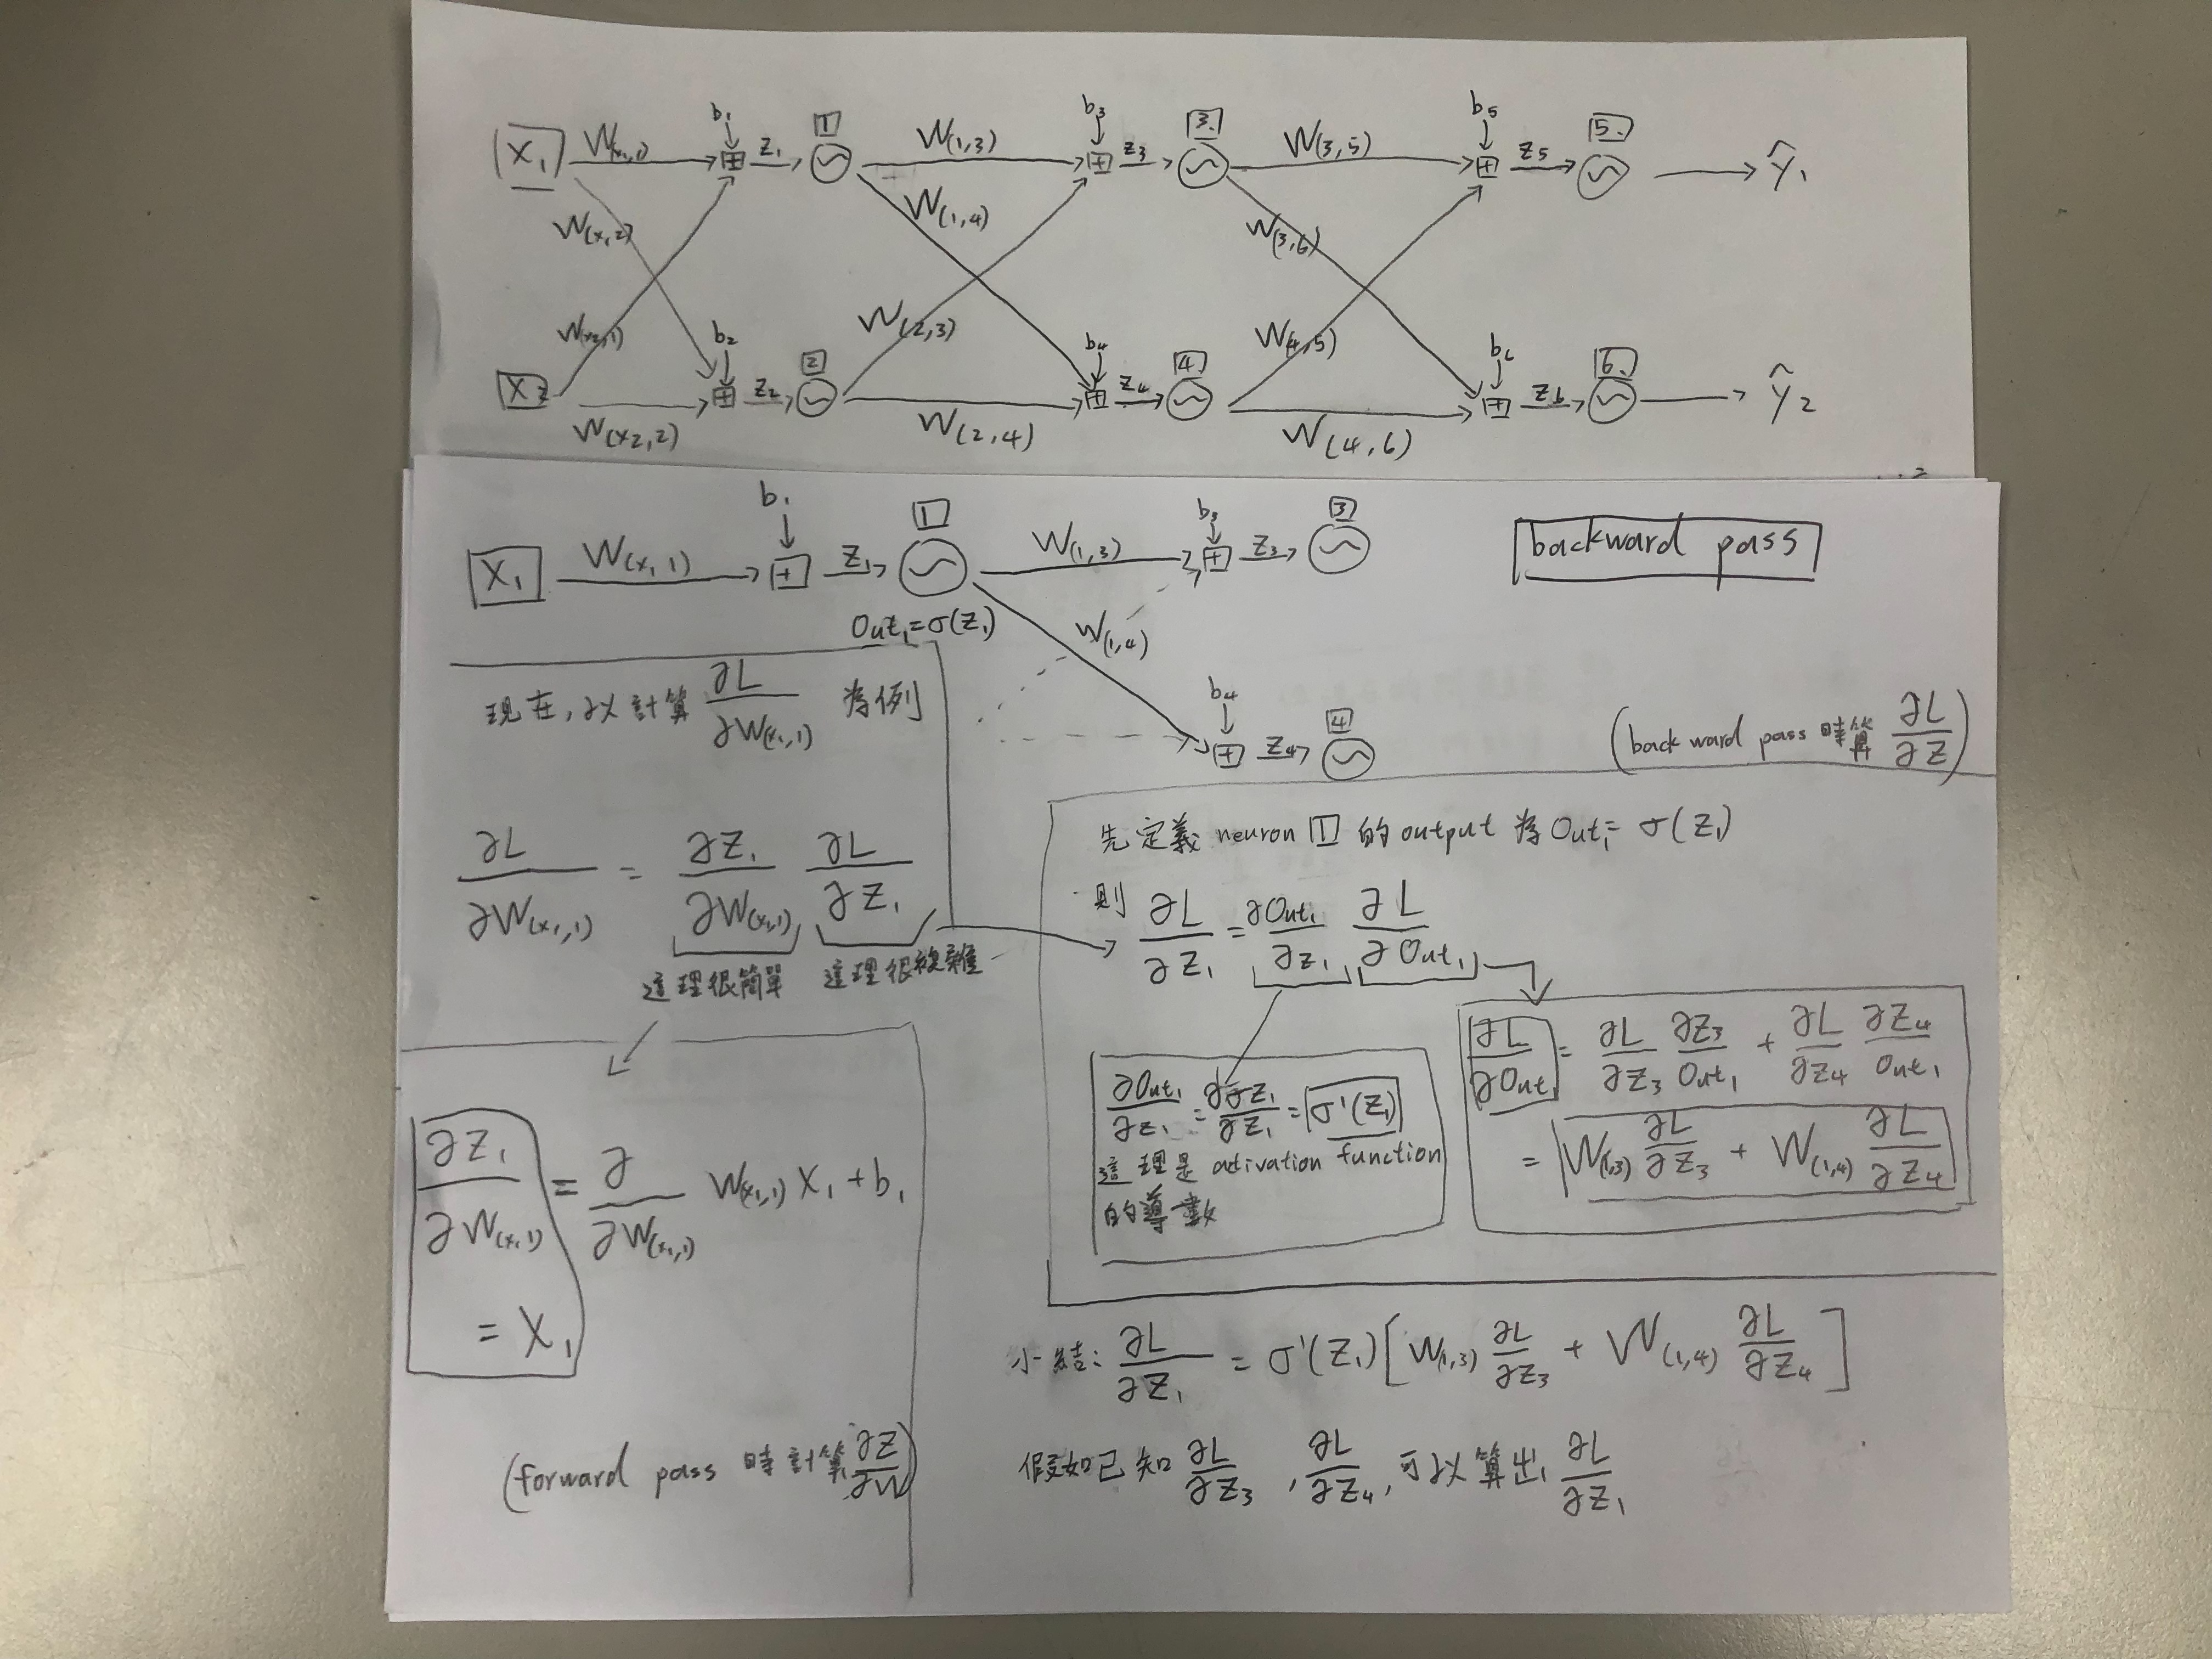 b₁ 1 b₃ 3. b₅ 5.
X₁ W(x₁,1) Z₁ W(1,3) Z₃ W(3,5) Z₅ ŷ₁
W(x₁,2) W(1,4) W(3,6)
W(x₂,1) b₂ 2 W(2,3) b₄ 4. W(4,5) b₆ 6.
X₂ Z₂ Z₄ Z₆ ŷ₂
W(x₂,2) W(2,4) W(4,6)
b₁ 1 b₃ 3
X₁ W(x₁,1) + Z₁ W(1,3) + Z₃ backward pass
Out₁=σ(Z₁) W(1,4)
b₄ 4
+ Z₄
現在,以計算 ∂L/∂W(x₁,1) 為例
(backward pass 時算 ∂L/∂Z)
∂L/∂W(x₁,1) = ∂Z₁/∂W(x₁,1) ∂L/∂Z₁
這理很簡單 這理很複雜
∂Z₁/∂W(x₁,1) = ∂/∂W(x₁,1) W(x₁,1) X₁ + b₁
= X₁
(forward pass 時計算 ∂Z/∂W)
先定義 neuron 1 的 output 為 Out₁ = σ(Z₁)
則 ∂L/∂Z₁ = ∂Out₁/∂Z₁ ∂L/∂Out₁
∂Out₁/∂Z₁ = ∂σZ₁/∂Z₁ = σ'(Z₁)
這理是 activation function
的導數
∂L/∂Out₁ = ∂L/∂Z₃ ∂Z₃/Out₁ + ∂L/∂Z₄ ∂Z₄/Out₁
= W(1,3) ∂L/∂Z₃ + W(1,4) ∂L/∂Z₄
小結: ∂L/∂Z₁ = σ'(Z₁)[W(1,3) ∂L/∂Z₃ + W(1,4) ∂L/∂Z₄]
假如已知 ∂L/∂Z₃ , ∂L/∂Z₄, 可以算出 ∂L/∂Z₁